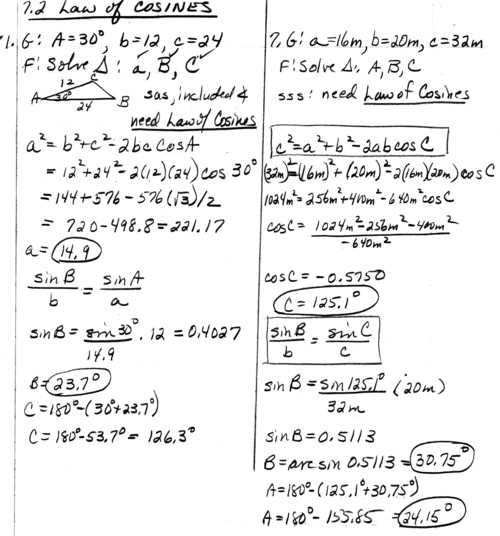 7.2 Law of COSINES
1. G: A=30°, b=12, c=24
F: Solve Δ: a, B, C
12 C
A 30° B
24
sas, included ∡
need Law of Cosines
a² = b² + c² - 2bc cos A
= 12² + 24² - 2(12)(24) cos 30°
= 144 + 576 - 576(√3)/2
= 720 - 498.8 = 221.17
a = 14.9
sin B / b = sin A / a
sin B = sin 30° / 14.9 · 12 = 0.4027
B = 23.7°
C = 180° - (30° + 23.7°)
C = 180° - 53.7° = 126.3°
7. G: a=16m, b=20m, c=32m
F: Solve Δ: A, B, C
sss: need Law of Cosines
c² = a² + b² - 2ab cos C
(32m)² = (16m)² + (20m)² - 2(16m)(20m) cos C
1024m² = 256m² + 400m² - 640m² cos C
cos C = 1024m² - 256m² - 400m² / -640m²
cos C = -0.5750
C = 125.1°
sin B / b = sin C / c
sin B = sin 125.1° / 32m (20m)
sin B = 0.5113
B = arc sin 0.5113 = 30.75°
A = 180° - (125.1° + 30.75°)
A = 180° - 155.85 = 24.15°